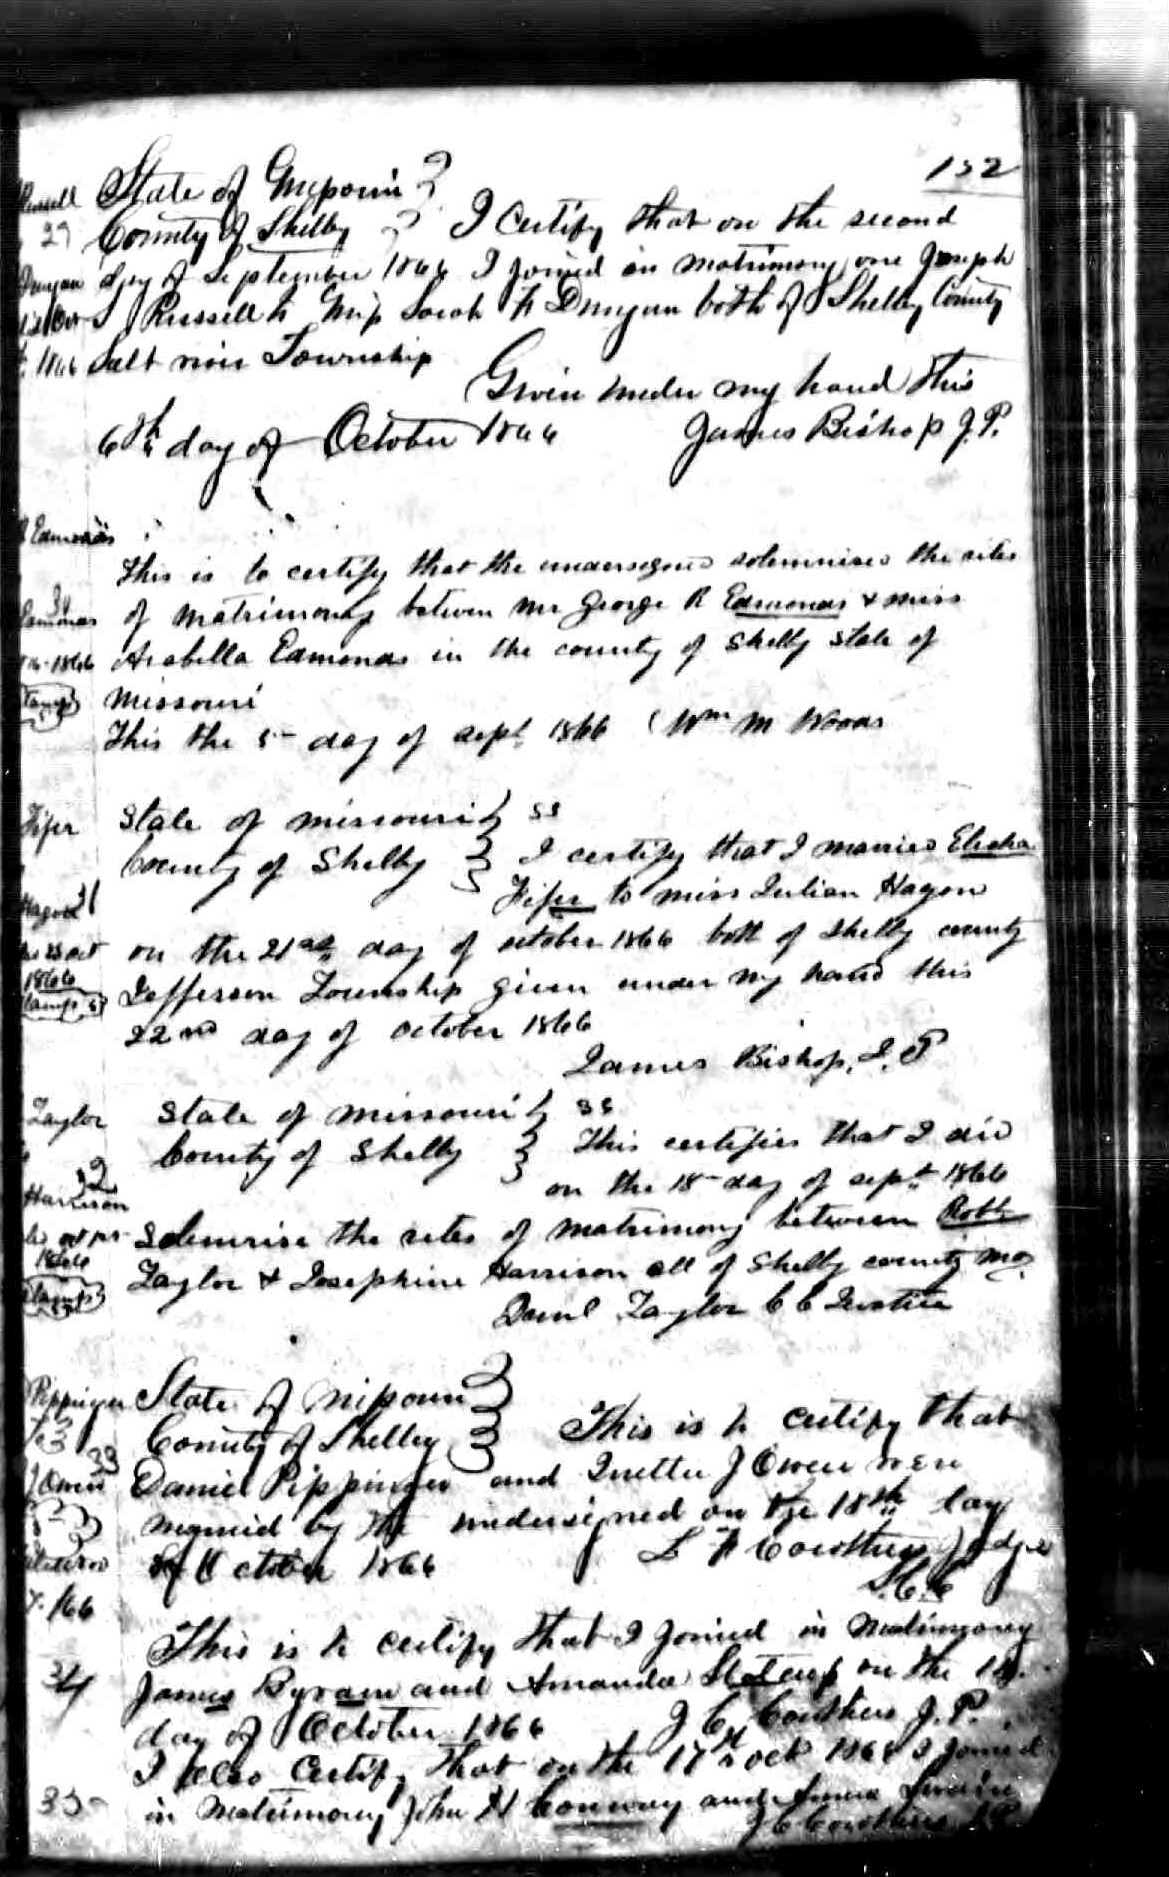 152
State of Missouri
County of Shelby I Certify that on the second
day of September 1866 I joined in matrimony one Joseph
S Russell to Miss Sarah F Dungan both of Shelby County
Salt river Township
Given under my hand this
6th day of October 1866 James Bishop J.P.
This is to certify that the undersigned solemnised the rites
of matrimony between Mr George R Edmonds & miss
Arabella Edmonds in the county of Shelby State of
Missouri
This the 5 day of sept 1866 Wm M Woods
State of missouri ss
County of Shelby I certify that I married Elisha
Fifer to miss Julian Hagon
on the 21st day of october 1866 both of Shelby county
Jefferson Township given under my hand this
22nd day of october 1866
James Bishop, J. P
State of missouri ss
County of Shelby This certifies that I did
on the 18 day of sept 1866
Solemnise the rites of matrimony between Robt
Taylor & Josephine Harrison all of Shelby county Mo
Danl Taylor C C Justice
State of Missouri
County of Shelby This is to certify that
Daniel Pippinger and J Owen were
married by the undersigned on the 18th day
of October 1866 L F Carothers Judge
S.C.C
This is to certify that I joined in Matrimony
James Byram and Amanda on the 18
day of October 1866 J C Carothers J.P.
I Also Certify that on the 17th oct 1866 I joined
in Matrimony John H Conway and
J C Carothers J.P.
Russell
29
Dungan
1866
Edmonds
30
Edmonds
1866
Stamps
Fifer
31
Hagon
1866
Stamps
Taylor
32
Harrison
1866
Stamps
Pippinger
33
J Owen
34
35